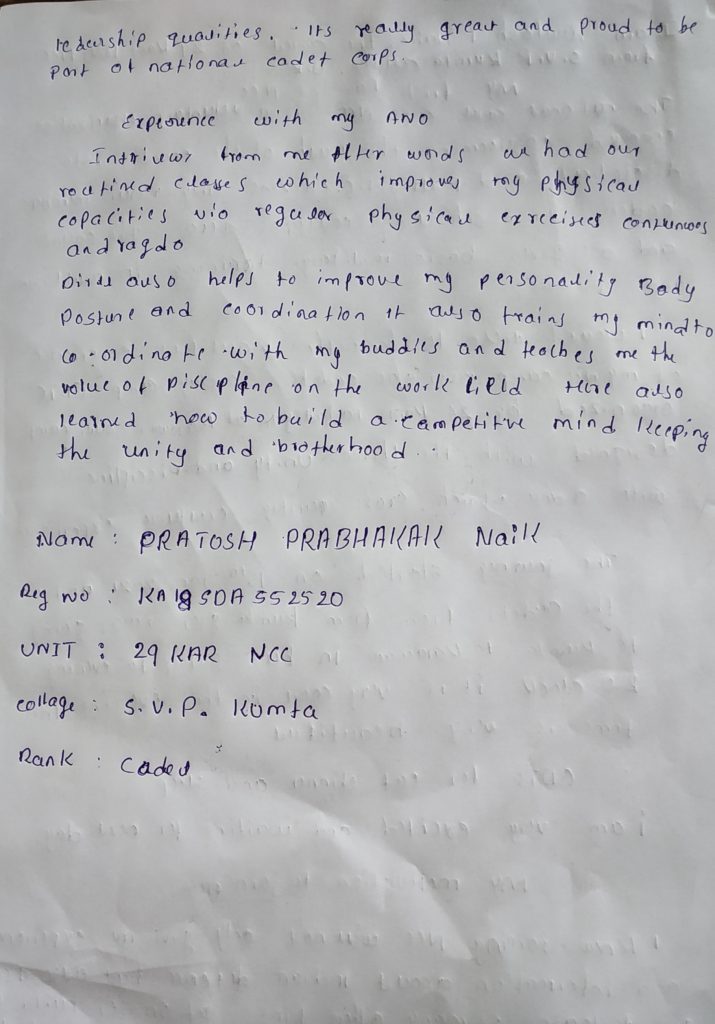 redership qualities. Its really great and proud to be
part of national cadet corps.
Experience with my ANO
from me After words we had our
routined classes which improves my physical
copacities via regular physical exrecises
and ragdo
also helps to improve my personality Body
Posture and coordination it also trains my mind to
co-ordinate with my buddies and teaches me the
value of on the work field Here also
learned how to build a competitive mind keeping
the unity and brotherhood.
Name : PRATOSH PRABHAKAR Naik
Reg no : KA18SDA552520
UNIT : 29 KAR NCC
collage : S.V.P. Kumta
Rank : Cadet